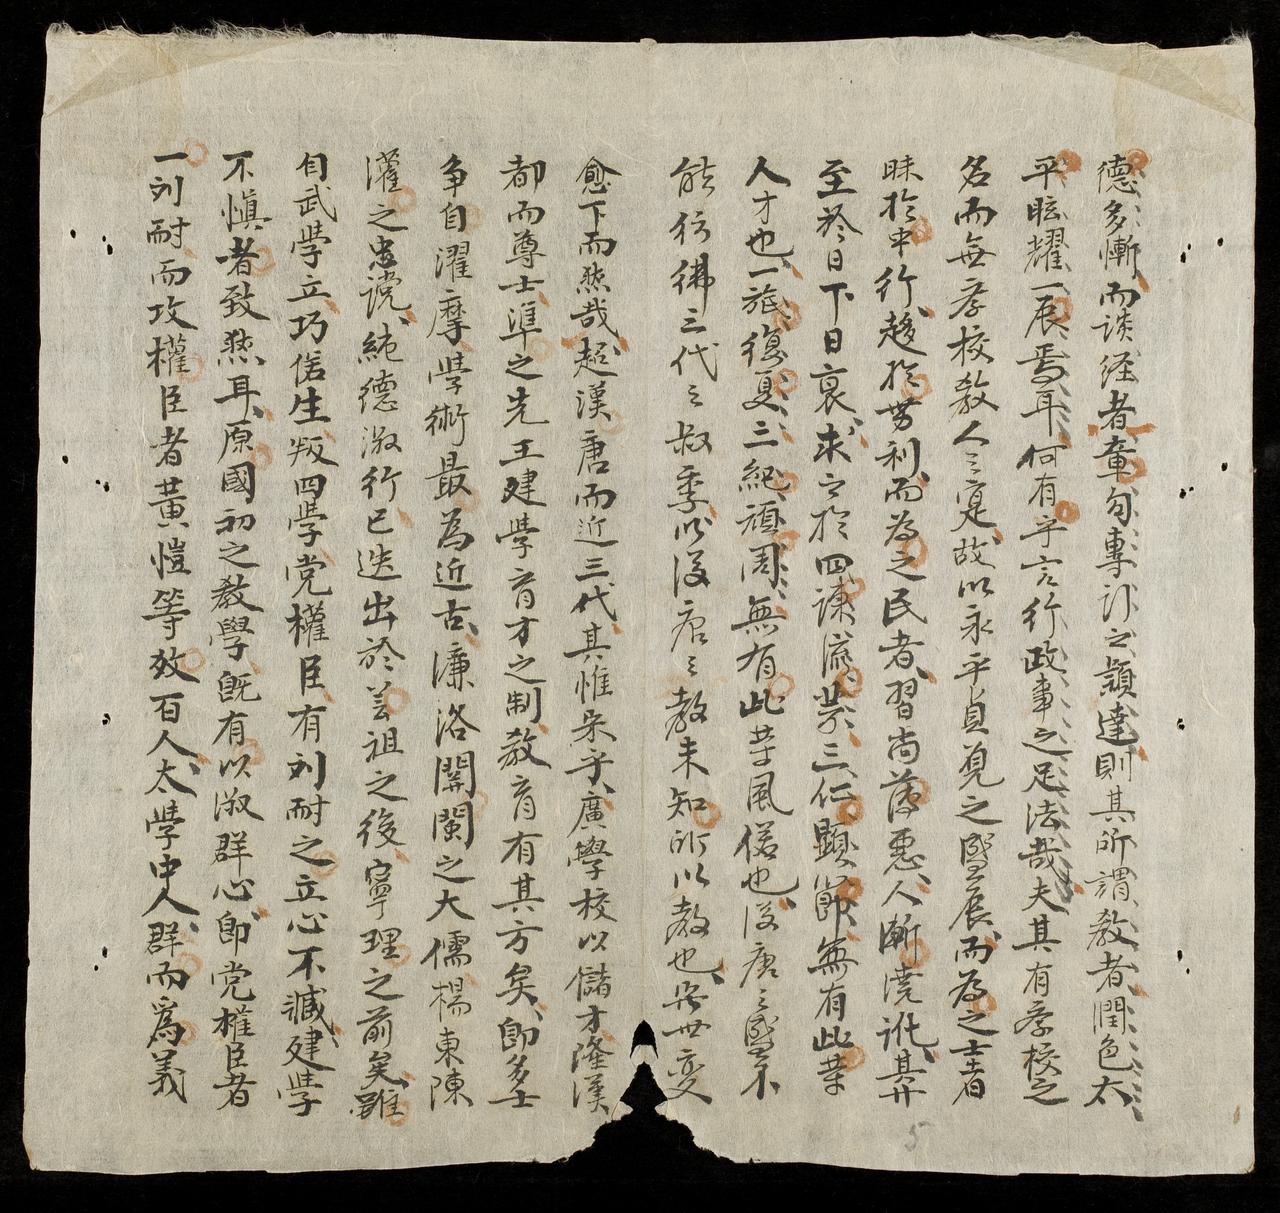 德多慚而談経者章句專訂之頴達則其所謂教者潤色太
平眩耀一展焉耳何有乎言行政事之足法哉夫其有孝校之
名而無孝校教人之寔故以永平貞覌之盛展而為之士者
昧於中行趍於勢利而為之民者習尚薄惡人漸澆訛其卄
至於日下日衰求之於四諫流芳三仁顕節無有此䓁
人才也一旅復夏三紀頑周無有此䓁風俗也後唐之盛不
能彷彿三代之叔季以後唐之教未知所以教也安世変
愈下而然哉超漢唐而近三代其惟宋乎廣學校以儲才隆漢
都而尊士準之先王建學育才之制教育有其方矣即多士
争自濯摩學術最為近古濂洛關閩之大儒楊東陳
灌之忠讜純德淑行已迭出於芸祖之後寧理之前矣雖
自武學立巧信生叛四學党權臣有刘耐之立心不臧建學
不慎者致然耳原國初之教學旣有以淑群心即党權臣者
一刘耐而攻權臣者黃愷等效百人太學中人群而爲義
5